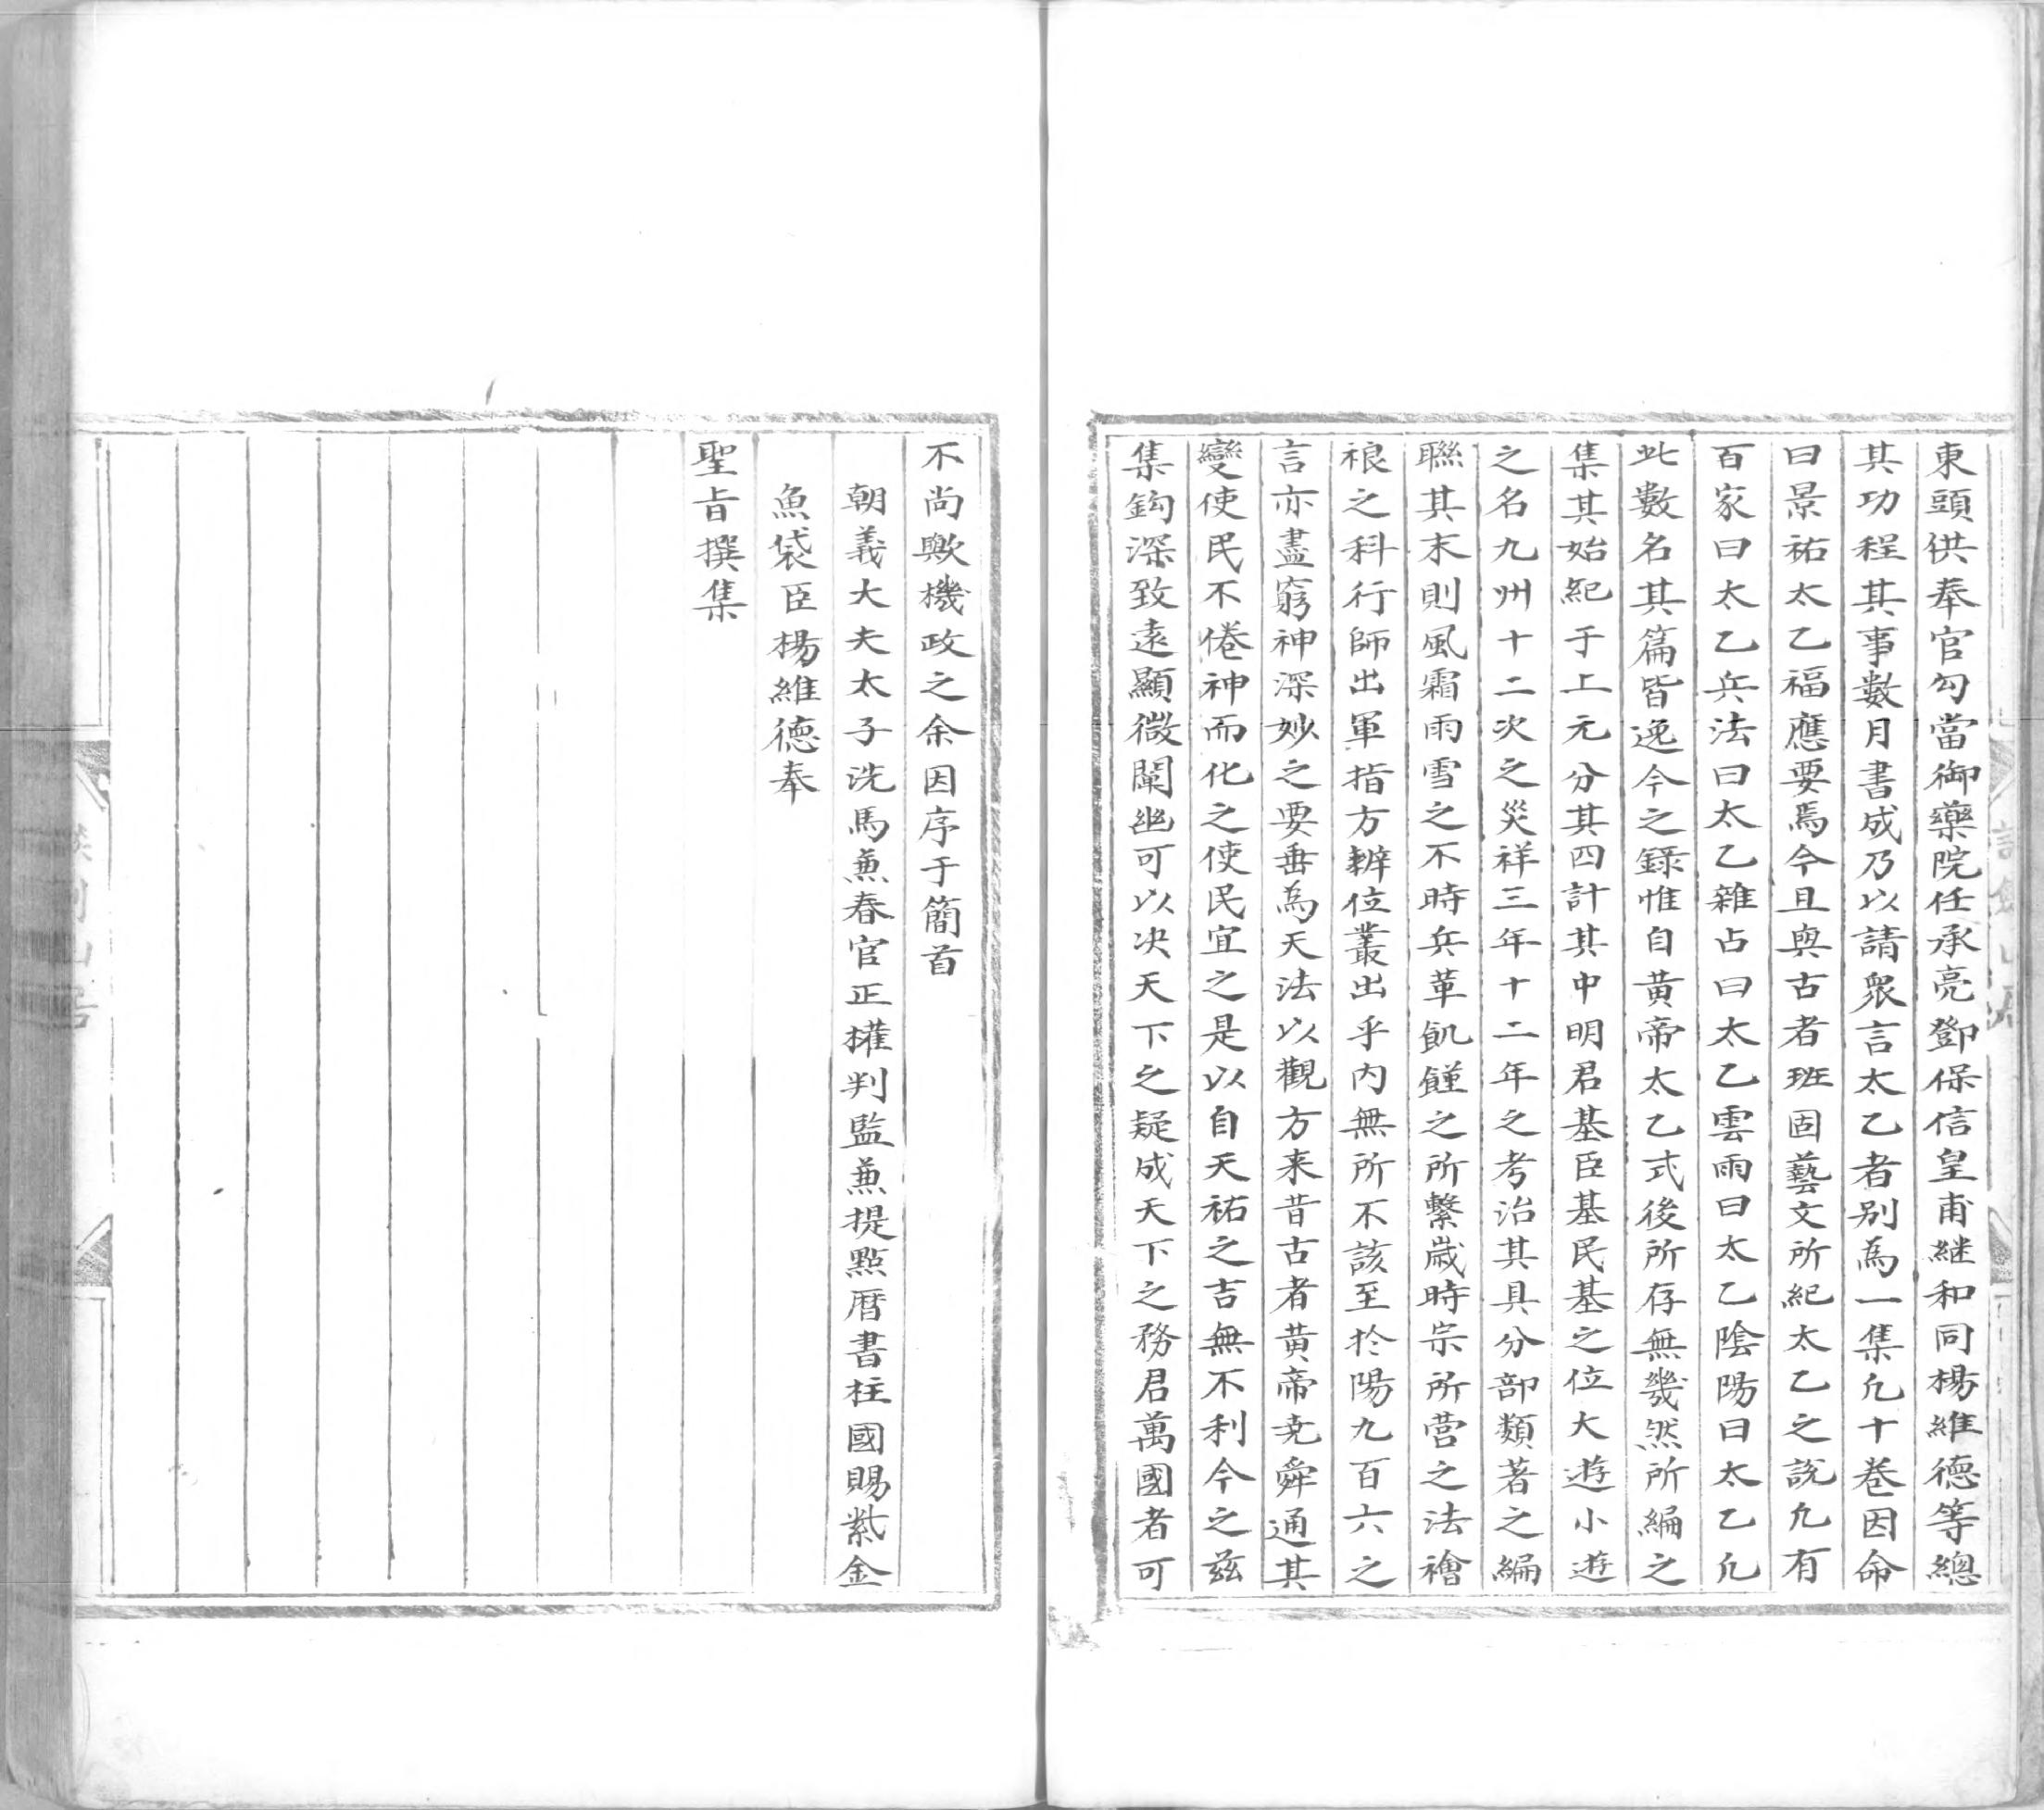 東頭供奉官勾當御藥院任承亮鄧保信皇甫継和同楊維德等總
其功程其事數月書成乃以請衆言太乙者别為一集凢十卷因命
曰景祐太乙福應要焉今且與古者班固藝文所紀太乙之說凢有
百家曰太乙兵法曰太乙雜占曰太乙雲雨曰太乙陰陽曰太乙凢
此數名其篇皆逸今之録惟自黄帝太乙式後所存無幾然所編之
集其始紀于上元分其四計其中明君基臣基民基之位大遊小遊
之名九州十二次之災祥三年十二年之考治其具分部類著之編
聯其末則風霜雨雪之不時兵革飢饉之所繫歳時宗所营之法禬
祲之科行師出軍指方辨位叢出乎内無所不該至扵陽九百六之
言亦盡窮神深妙之要垂為天法以觀方来昔古者黄帝尭舜通其
變使民不倦神而化之使民宜之是以自天祐之吉無不利今之茲
集鈎深致遠顯微闡幽可以决天下之疑成天下之務君萬國者可
不尚歟機政之余因序于簡首
朝義大夫太子洗馬兼春官正權判監兼提點曆書柱國賜紫金
魚袋臣楊維德奉
聖旨撰集